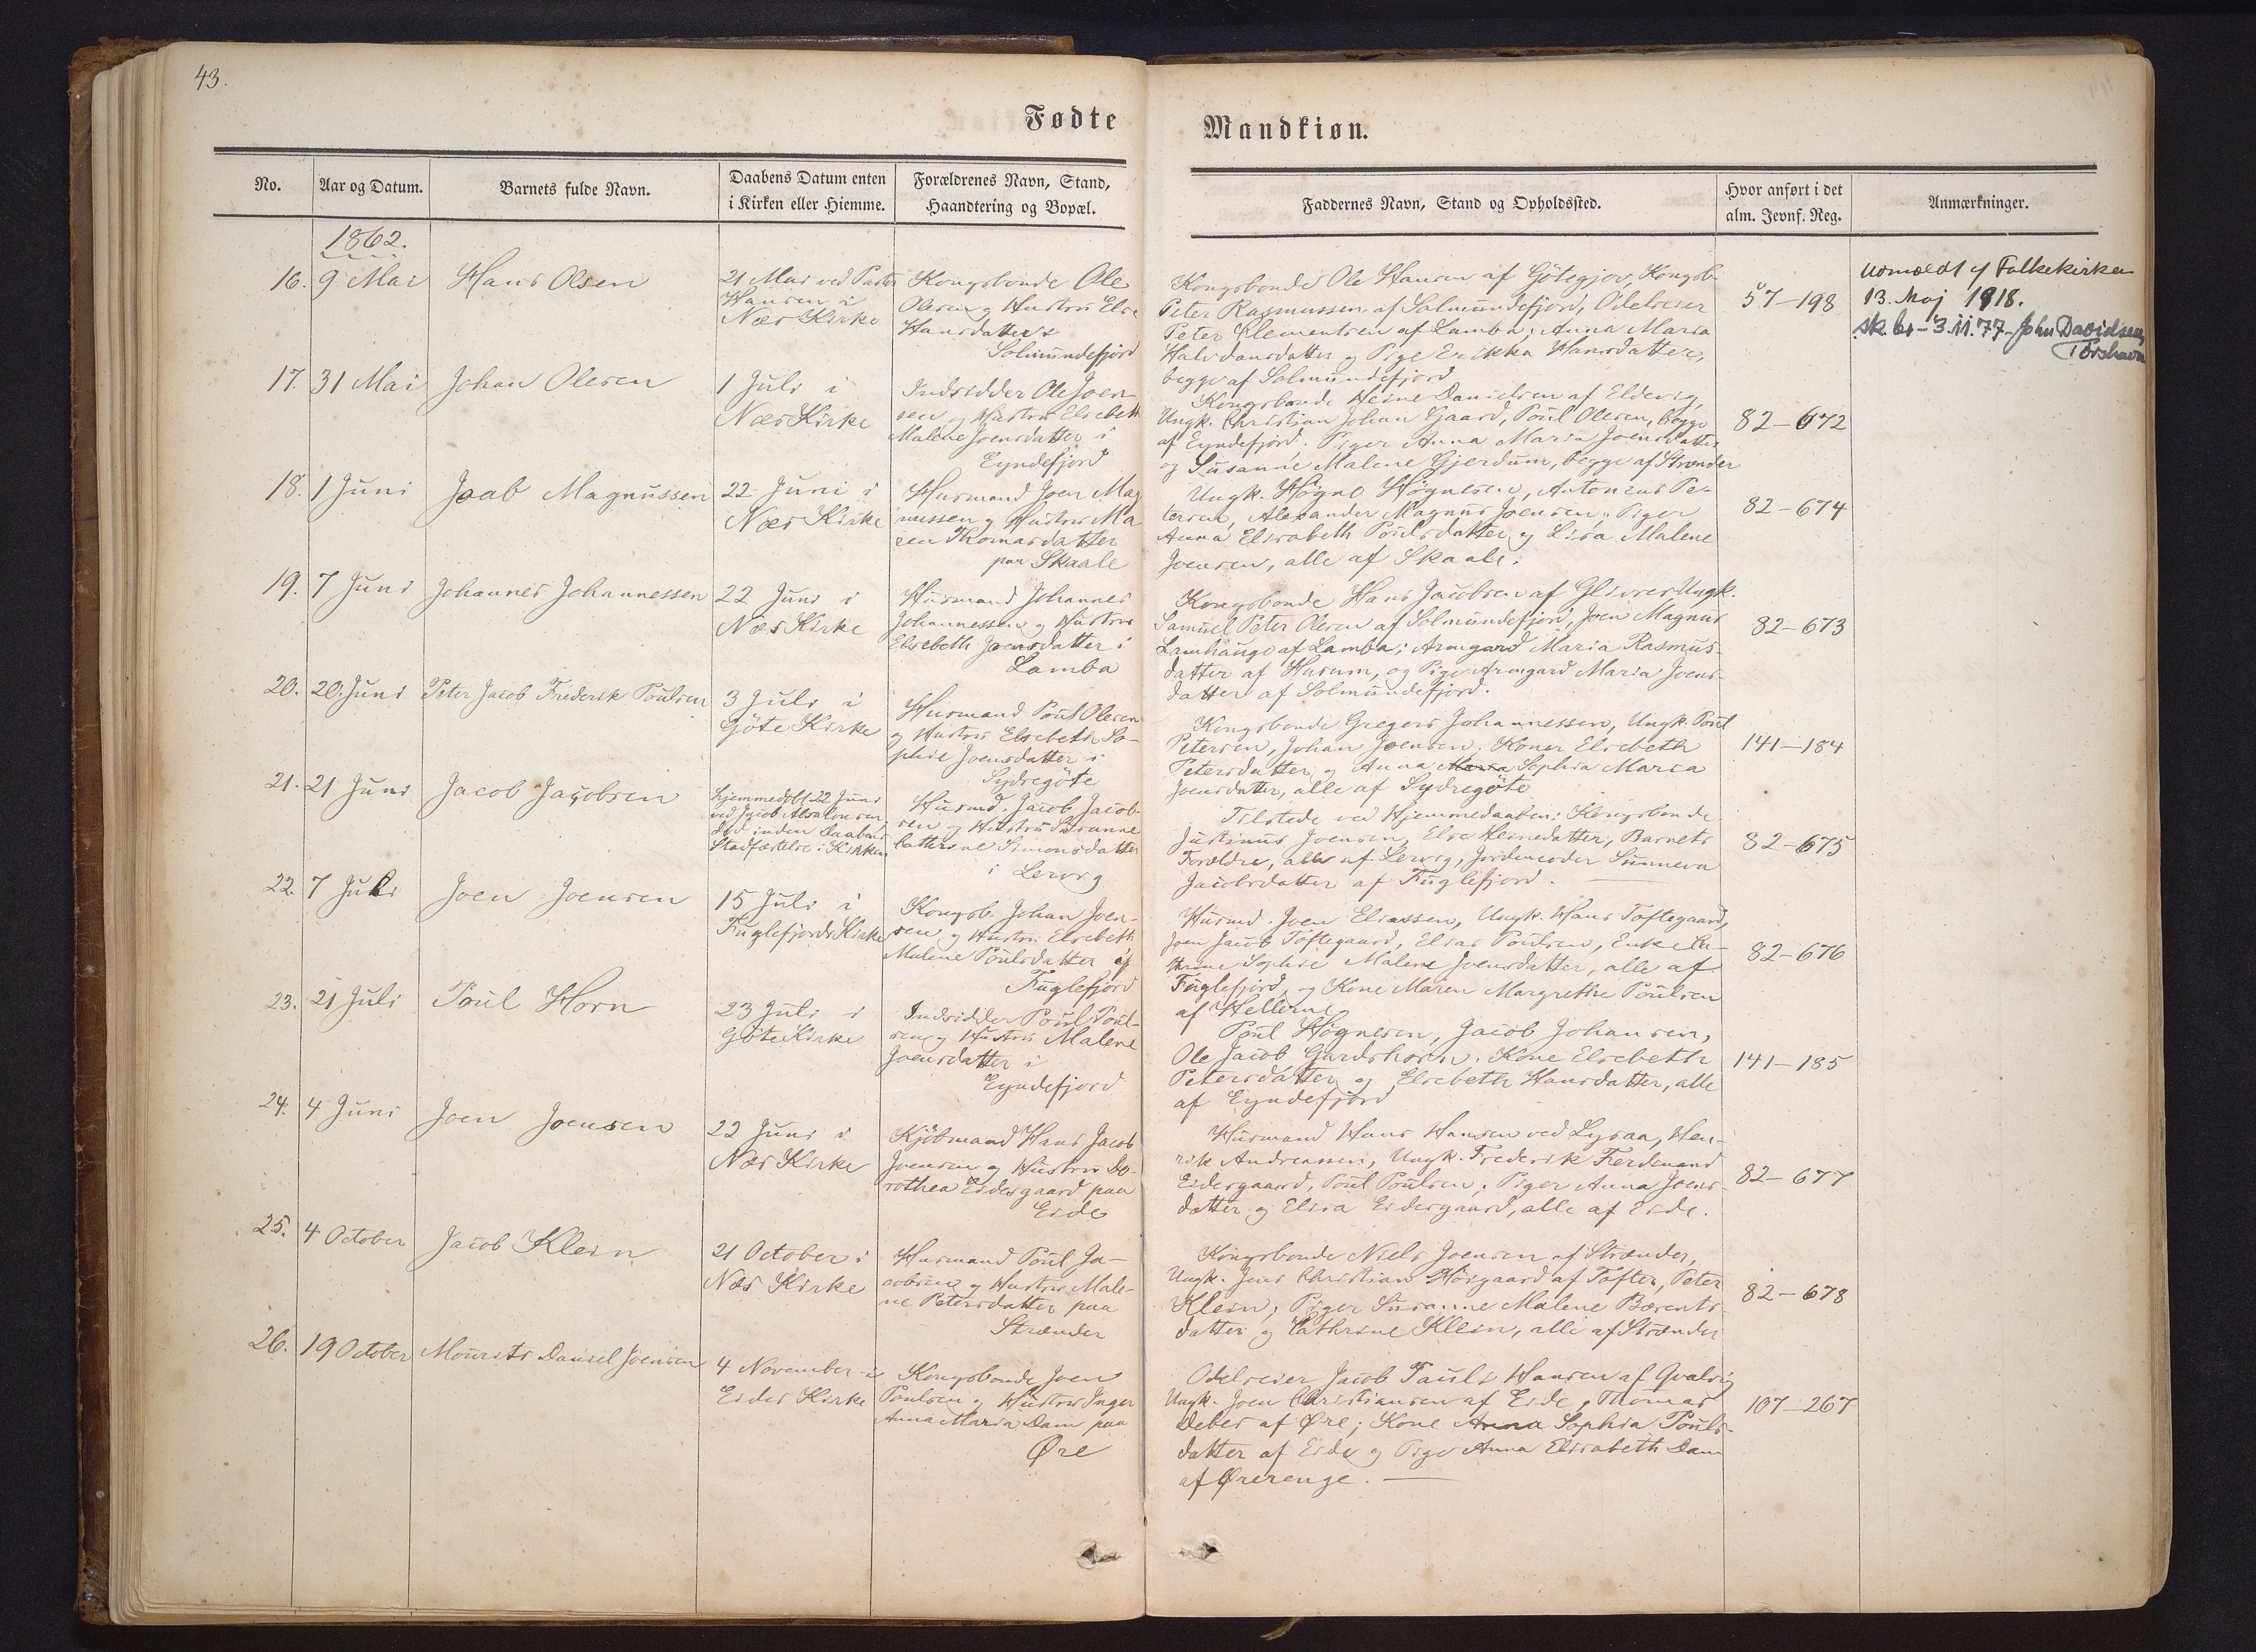 43.
Fødte
Mandkiøn.
No.
Aar og Datum.
Barnets fulde Navn.
Daabens Datum enten
i Kirken eller Hiemme.
Forældrenes Navn, Stand,
Haandtering og Bopæl.
Faddernes Navn, Stand og Opholdssted.
Hvor anført i det
alm. Jevnf. Reg.
Anmærkninger.
1862.
16. 9 Mai
Hans Olsen
21 Mai ved Pastor
Hansen i
Næs Kirke
Kongsbonde Ole
Olesen og Hustru Else
Hansdatter
Solmundefjord
Kongsbonde Ole Hansen af Götegjov, Kongsb.
Peter Rasmussen af Solmundefjord, Odelseier
Peter Clementsen af Lamba; Anna Maria
Halvdansdatter og Pige Erikka Hansdatter,
begge af Solmundefjord
57-198
Udmeldt af Folkekirken
13. Maj 1918.
sk. br. - 3.11.77 - John Davidsen
Tórshavn
17. 31 Mai
Johan Olesen
1 Juli i
Næs Kirke
Indsidder Ole Joen-
sen og Hustru Elsebeth
Malene Joensdatter i
Eyndefjord
Kongsbonde Heine Danielsen af Eldevig,
Ungk. Christian Johan Gaard, Poul Olesen, begge
af Eyndefjord. Piger Anna Maria Joensdatter
og Susanne Malene Gjerdum, begge af Strænder
82-672
18. 1 Juni
Joab Magnussen
22 Juni i
Næs Kirke
Husmand Joen Mag
nussen og Hustru Ma
ren Thomasdatter
paa Skaale
Ungk. Högne Högnesen, Antonius Pe-
tersen, Alexander Magnus Joensen, Piger
Anna Elisabeth Poulsdatter og Lisa Malene
Joensen, alle af Skaale.
82-674
19. 7 Juni
Johannes Johannessen
22 Juni i
Næs Kirke
Husmand Johannes
Johannessen og Hustru
Elsebeth Joensdatter i
Lamba
Kongsbonde Hans Jacobsen af Glivrer Ungk.
Samuel Peter Olesen af Solmundefjord, Joen Magnus
Lamhauge af Lamba; Armgard Maria Rasmus-
datter af Husum, og Pige Armgard Maria Joens-
datter af Solmundefjord.
82-673
20. 20. Juni
Peter Jacob Frederik Poulsen
3 Juli i
Göte Kirke
Husmand Poul Olesen
og Hustru Elsebeth So-
phie Joensdatter i
Sydregöte
Kongsbonde Gregers Johannessen, Ungk. Poul
Petersen, Johan Joensen. Koner Elsebeth
Petersdatter og Anna Maria Sophia Maria
Joensdatter, alle af Sydregöte
141-184
21. 21 Juni
Jacob Jacobsen
hjemmedöbt 22 Juni
ved Jacob Absalonsen
död inden Daabens
Stadfæstelse i Kirken
Husmd. Jacob Jacob
sen og Hustru Susanne
Cathrine Simonsdatter
i Lervig
Tilstede ved Hjemmedaaben: Kongsbonde
Justinus Joensen, Else Heinedatter, Barnets
Forældre, alle af Lervig, Jordemoder Sunneva
Jacobsdatter af Fuglefjord.
82-675
22. 7 Juli
Joen Joensen
15 Juli i
Fuglefjords Kirke
Kongsb. Johan Joen-
sen og Hustru Elsebeth
Malene Poulsdatter af
Fuglefjord
Husmd. Joen Eliassen, Ungk. Hans Toftegaard,
Joen Jacob Toftegaard, Elias Poulsen, Enke Ca-
thrine Sophie Malene Joensdatter, alle af
Fuglefjord, og Kone Maren Margrethe Poulsen
af Hellerne
82-676
23. 21 Juli
Poul Horn
23 Juli i
Göte Kirke
Indsidder Poul Poul-
sen og Hustru Malene
Joensdatter i
Eyndefjord
Poul Högnesen, Jacob Johansen,
Ole Jacob Gardshorn. Kone Elsebeth
Petersdatter og Elsebeth Hansdatter, alle
af Eyndefjord
141-185
24. 4 Juni
Joen Joensen
22 Juni i
Næs Kirke
Kjöbmand Hans Jacob
Joensen og Hustru Do-
rothea Eidesgaard paa
Eide
Husmand Hans Hansen ved Lysaa, Hen-
rik Andreassen, Ungk. Frederik Ferdinand
Eidesgaard, Poul Poulsen; Piger Anna Joens-
datter og Elisa Eidesgaard, alle af Eide.
82-677
25. 4 October
Jacob Klein
21 October i
Næs Kirke
Husmand Poul Ja-
cobsen og Hustru Male-
ne Petersdatter paa
Strænder
Kongsbonde Niels Joensen af Strænder,
Ungk. Jens Christian Höjgaard af Tofter, Peter
Klein; Piger Susanne Malene Bærents-
datter og Cathrine Klein, alle af Strænder
82-678
26. 19 October
Mourits Daniel Joensen
4 November i
Eides Kirke
Kongsbonde Joen
Poulsen og Hustru Inger
Anna Maria Dam paa
Øre
Odelseier Jacob Pauli Hansen af Qvalvig
Ungk. Joen Christiansen af Eide, Thomas
Debes af Øre; Kone Anna Sophia Pouls-
datter af Eide og Pige Anna Elisabeth Dam
af Ørerenge.
107-267